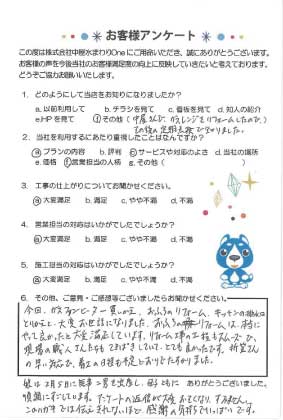 お客様アンケート
この度は株式会社中屋水まわりOneにご用命いただき、誠にありがとうございます。
お客様の声を今後当社のお客様満足度の向上に反映していきたいと考えております。
どうぞご協力お願いいたします。
1. どのようにして当店をお知りになりましたか?
a. 以前利用して b. チラシを見て c. 看板を見て d. 知人の紹介
e.HPを見て f その他(中屋さんで、ガスレンジをリフォームしたので、)
その後の定期点検で知りました。
2. 当社を利用するにあたり重視したことはなんですか?
a プランの内容 b. 評判 c サービスや対応のよさ d. 当社の場所
e. 価格 f 営業担当の人柄 g. その他( )
3. 工事の仕上がりについてお聞かせください。
a 大変満足 b. 満足 c. やや不満 d. 不満
4. 営業担当の対応はいかがでしたでしょうか?
a 大変満足 b. 満足 c. やや不満 d. 不満
5. 施工担当の対応はいかがでしたでしょうか?
a 大変満足 b. 満足 c. やや不満 d. 不満
6. その他、ご意見・ご感想等ございましたらお聞かせください。
今回、ガスファンヒーター買いから、おふろのリフォーム、キッチンの排水口
とりかえと、大変お世話になりました。おふろのリフォームは、特に
やって良かったと大変満足しています。リフォーム工事の工程もスムーズで、
現場の職人さんたちもてきぱきしていて、とても良かったです。
の早い対応で、着工の日程も予定どおりでたすかりました。
娘は2月5日に無事二男を出産し、母子ともに ありがとうございました。
順調にすごしています。アンケートの返信が大変おそくなり、すみません。
このハガキでは伝えきれないほど、感謝の気持ちでいっぱいです。